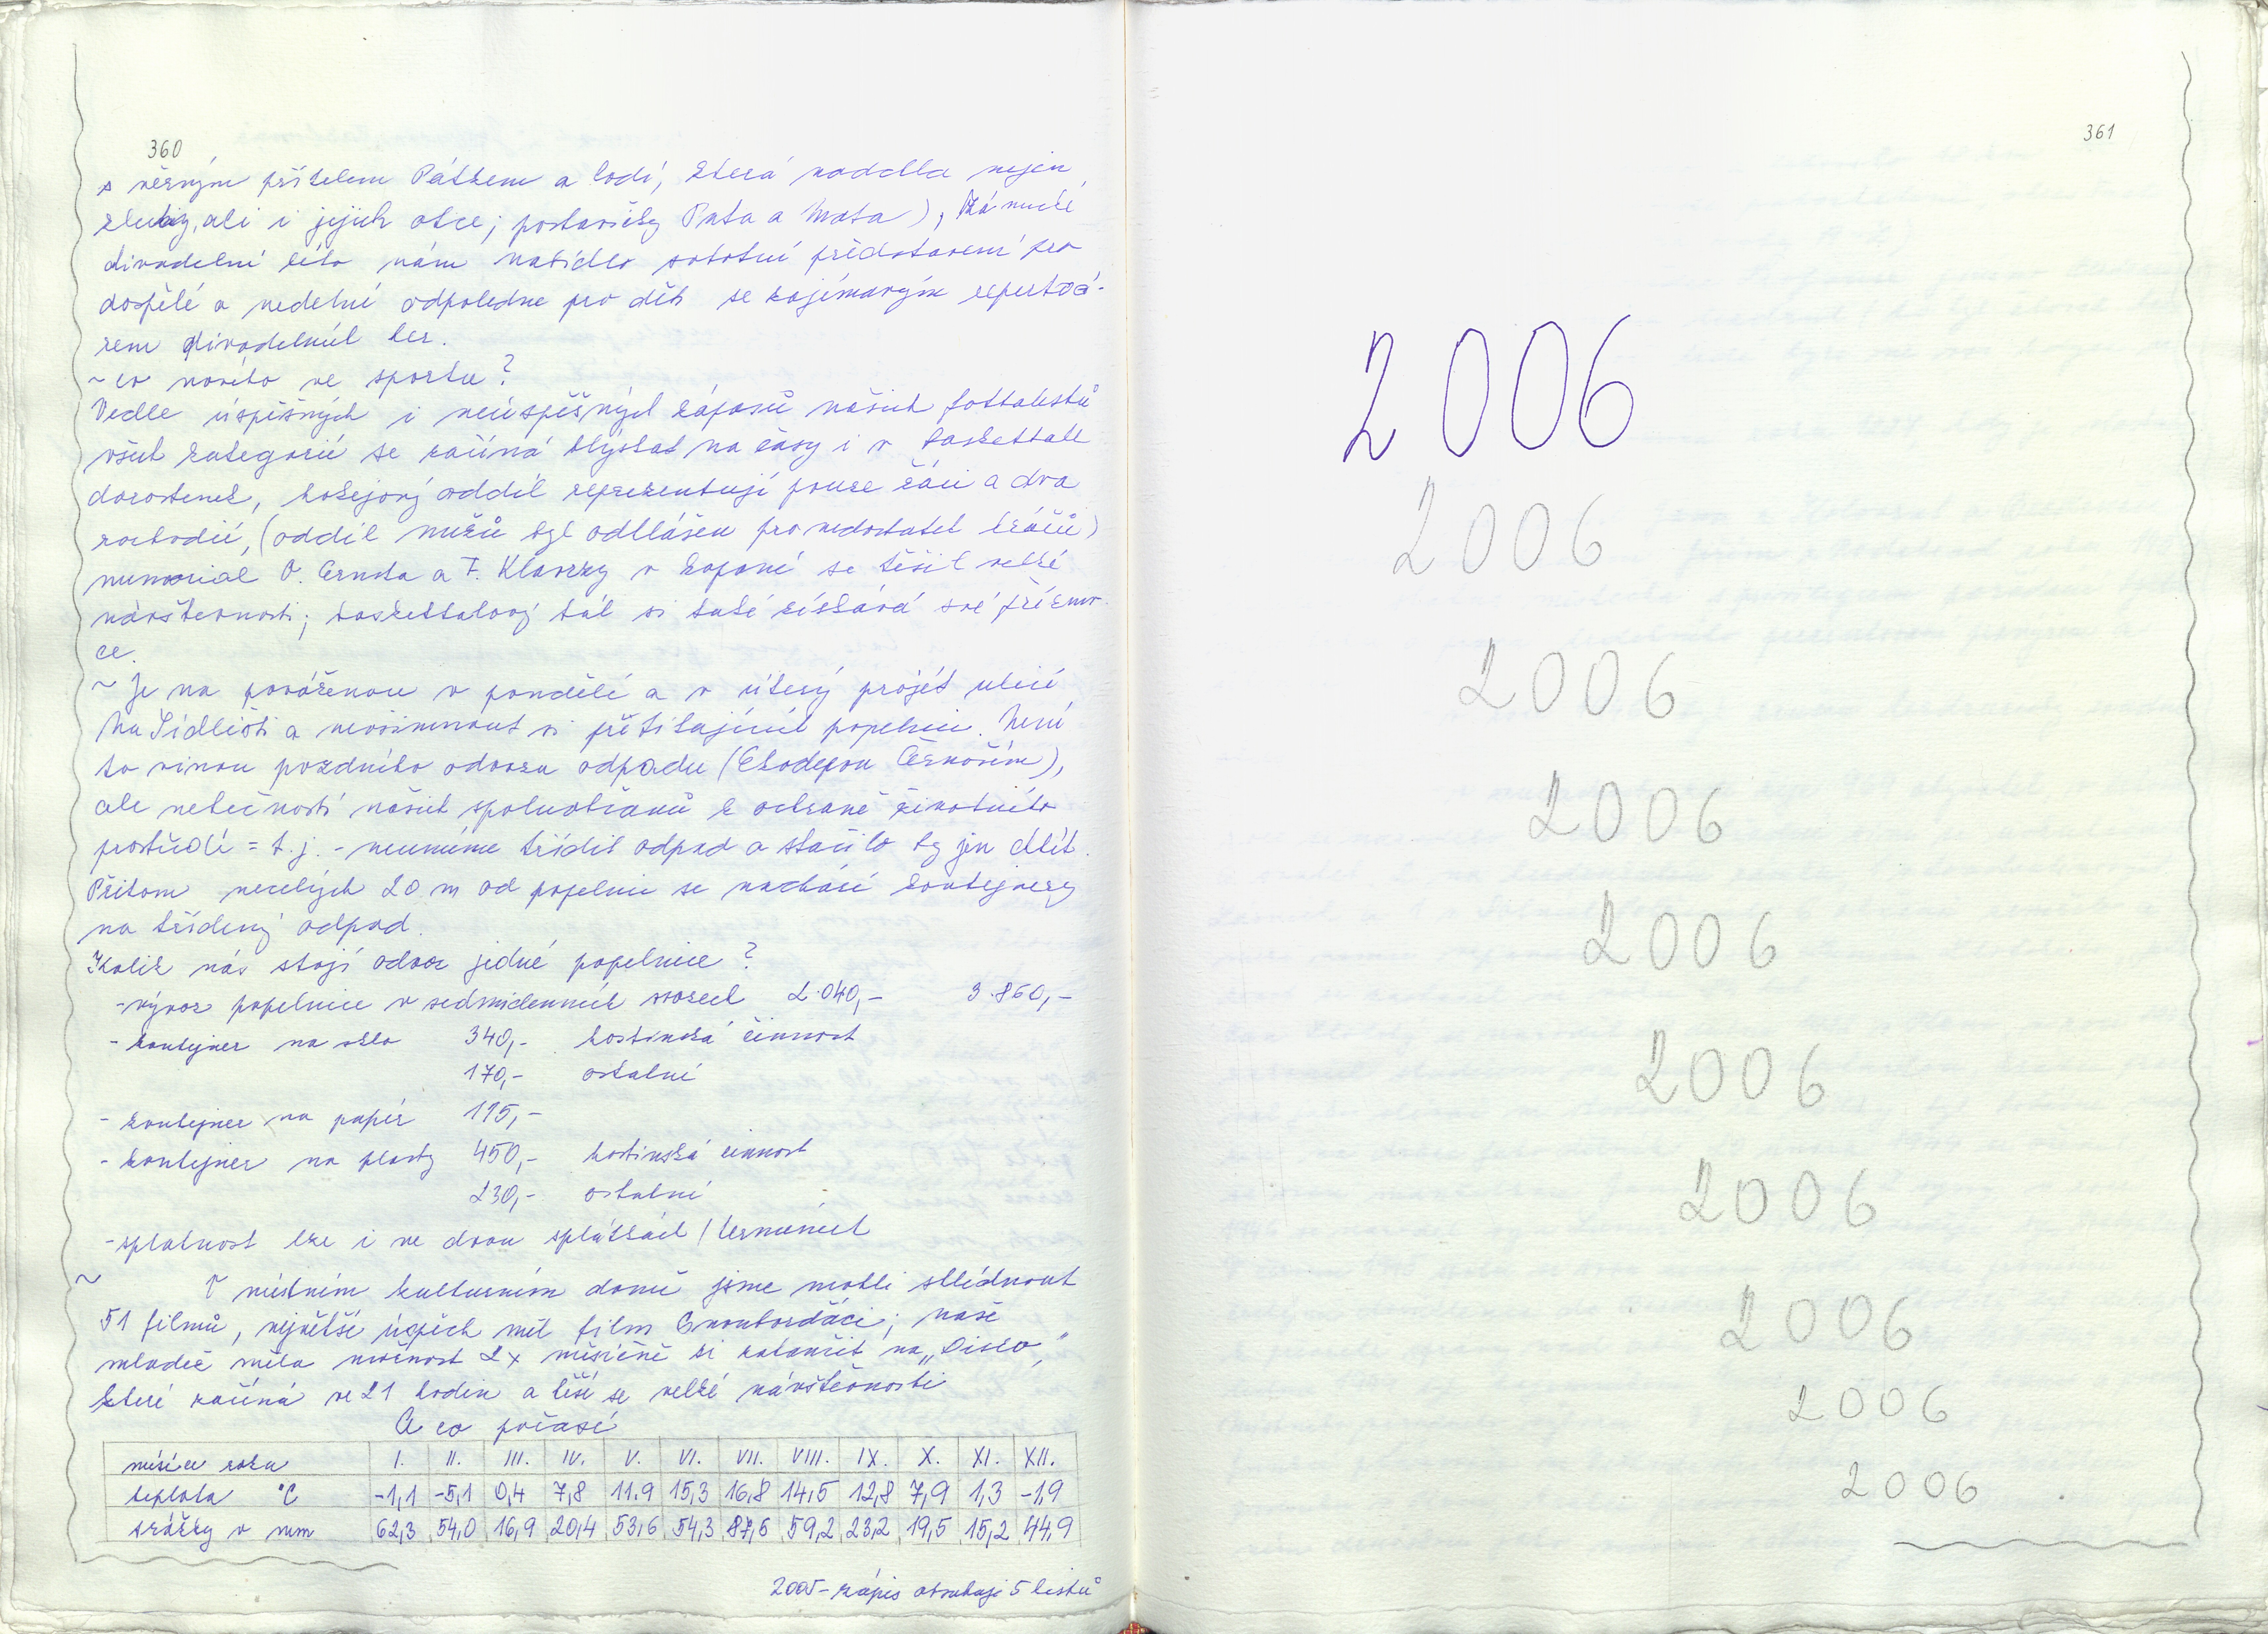 360
s věrným přítelem Pátkem a lodí, která nadchla nejen
kluky, ale i jejich otce; postavičky Pata a Mata), Zámecké
divadelní léto nám nabídlo sobotní představení pro
dospělé a nedělní odpoledne pro děti se zajímavým repertoá-
rem divadelních her.
~ co nového ve sportu?
Vedle úspěšných i neúspěšných zápasů našich fotbalistů
všech kategorií se začíná blýskat na časy i v basketbale
dorostenek, hokejový oddíl reprezentují pouze žáci a dva
rozhodčí, (oddíl mužů byl odhlášen pro nedostatek hráčů)
memoriál O. Ernsta a F. Klavrzy v kopané se těšil velké
návštěvnosti; basketbalový bál si také získává své přízniv-
ce.
~ Je na pováženou v pondělí a v úterý projet ulicí
Na Sídlišti a nevšimnout si přetékajících popelnic. Není
to vinou pozdního odvozu odpadu (Ekodepon Černošín),
ale netečností našich spoluobčanů k ochraně životního
prostředí = t.j. - neumíme třídit odpad a stačilo by jen chtít.
Přitom necelých 20 m od popelnic se nachází kontejnery
na tříděný odpad.
Kolik nás stojí odvoz jedné popelnice?
- vývoz popelnice v sedmidenních svozech 2.040,- 3.860,-
- kontejner na sklo 340,- hostinská činnost
170,- ostatní
- kontejner na papír 195,-
- kontejner na plasty 450,- hostinská činnost
230,- ostatní
- splatnost lze i ve dvou splátkách / termínech
~ V místním kulturním domě jsme mohli shlédnout
51 filmů, největší úspěch měl film Snowborďáci; naše
mládež měla možnost 2x měsíčně si zatančit na „Disco“,
které začíná ve 21 hodin a těší se velké návštěvnosti
A co počasí
měsíce roku I. II. III. IV. V. VI. VII. VIII. IX. X. XI. XII.
teplota °C -1,1 -5,1 0,4 7,8 11.9 15,3 16,8 14,5 12,8 7,9 1,3 -1,9
srážky v mm 62,3 54,0 16,9 20,4 53,6 54,3 87,6 59,2 23,2 19,5 15,2 44,9
2005 - zápis obsahuje 5 listů
361
2006
2006
2006
2006
2006
2006
2006
2006
2006
2006